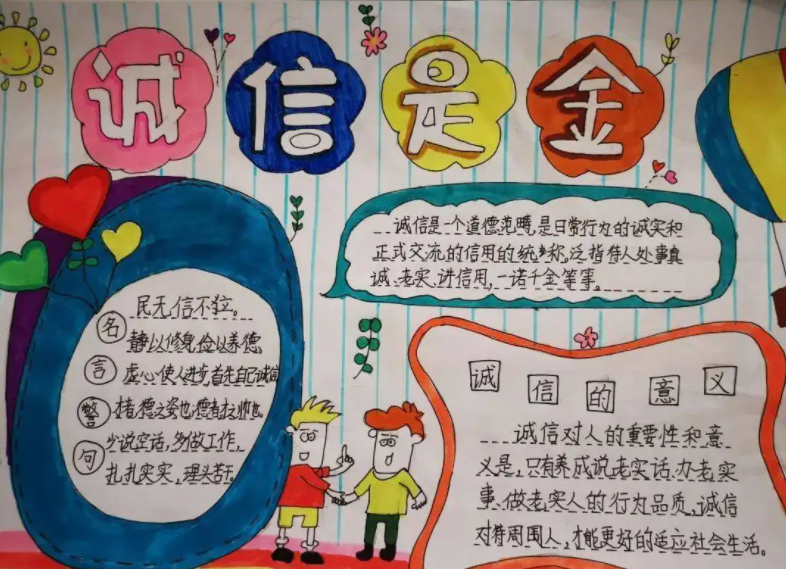 诚信是金
诚信是一个道德范畴,是日常行为的诚实和
正式交流的信用的统称,泛指待人处事真
诚、老实、讲信用,一诺千金等等。
名言警句
民无信不立。
静以修身,俭以养德
虚心使人进步,首先自己诚信
才者,德之资也,德者
少说空话,多做工作,
扎扎实实,埋头苦干。
诚信的意义
诚信对人的重要性和意
义是,只有养成说老实话、办老实
事、做老实人的行为品质,诚信
对待周围人,才能更好的适应社会生活。